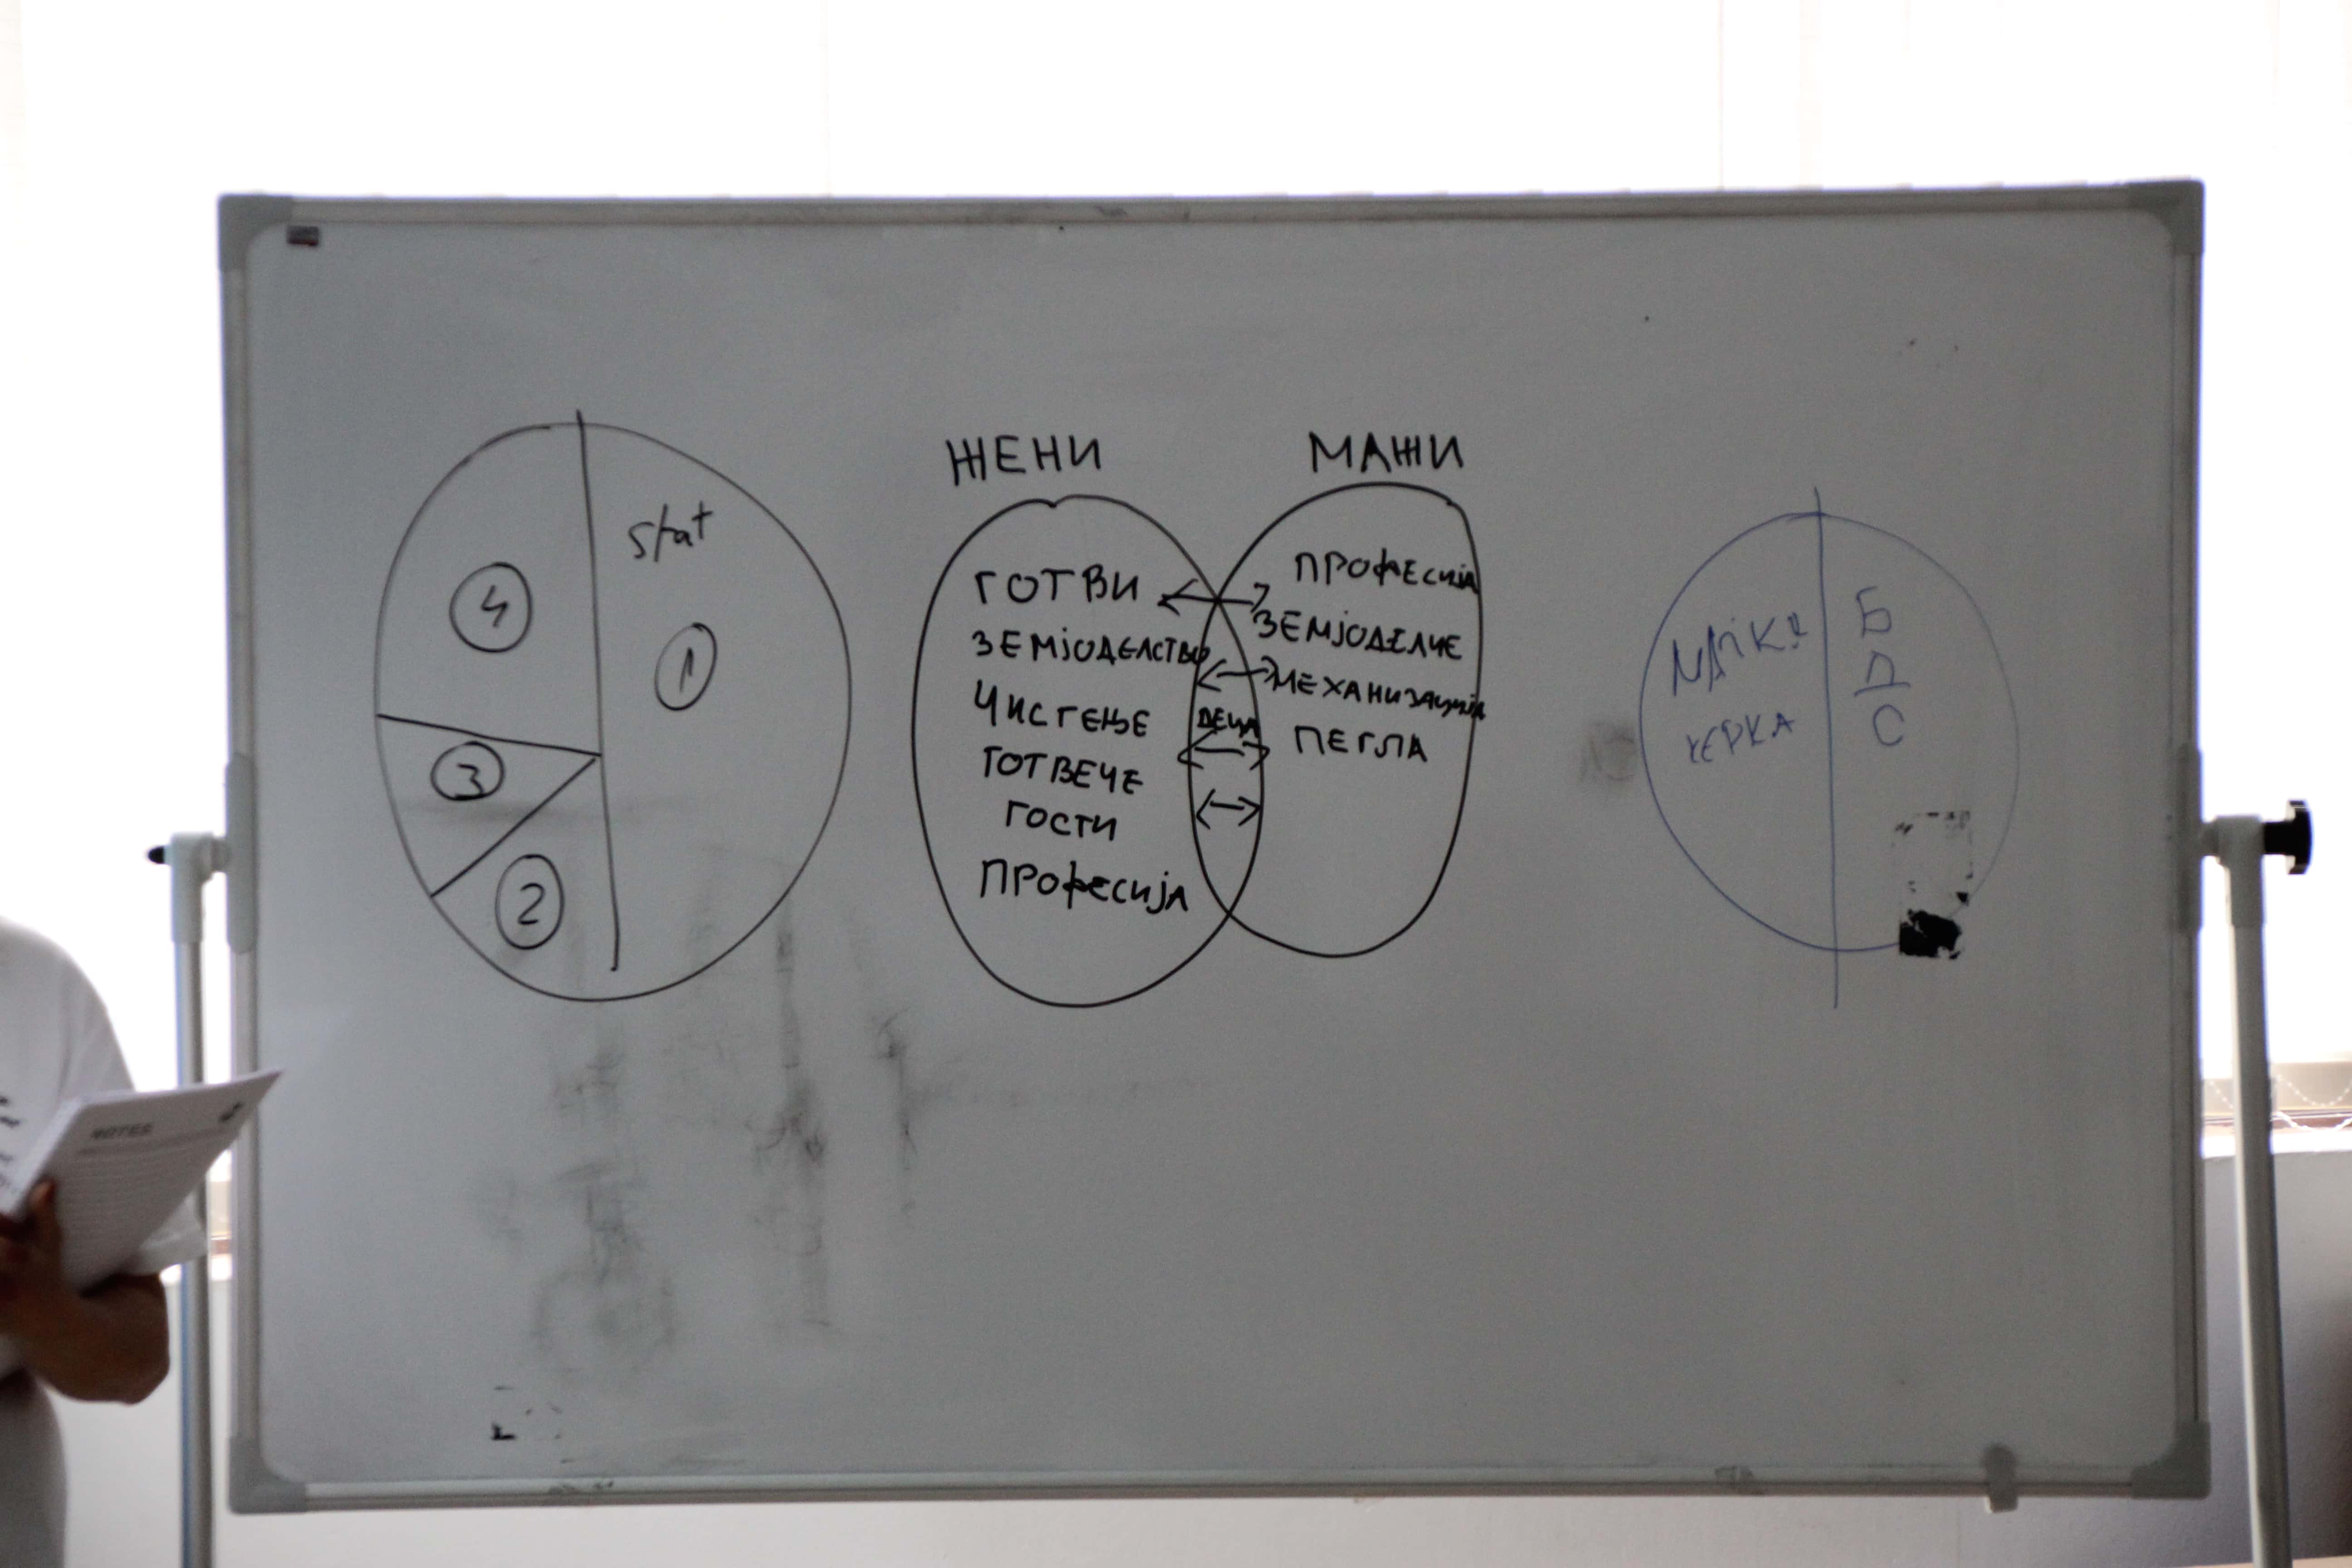 stat
4
1
3
2
ЖЕНИ
ГОТВИ
ЗЕМЈОДЕЛСТВО
ЧИСТЕЊЕ
ГОТВЕЧЕ
ГОСТИ
ПРОФЕСИЈА
ДЕЦА
МАЖИ
ПРОФЕСИЈА
ЗЕМЈОДЕЛЧЕ
МЕХАНИЗАЦИЈА
ПЕГЛА
МАЈКА
ЌЕРКА
Б
Д
С
NOTES